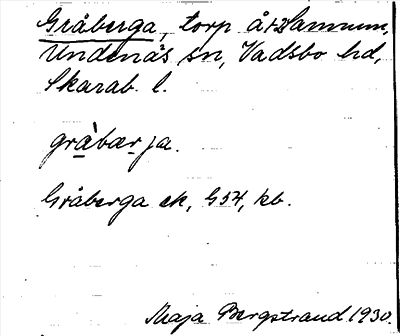 Gråberga, torp å Sannum,
Undenäs sn, Vadsbo hd,
Skarab. l.
gràbærja.
Gråberga ek, G54, kb.
Maja Bergstrand 1930.